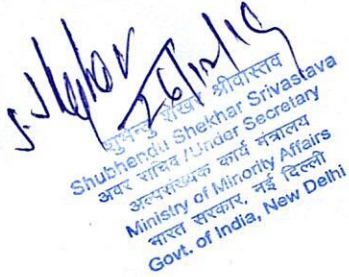 26/12/19
शुभेन्दु शेखर श्रीवास्तव
Shubhendu Shekhar Srivastava
अवर सचिव / Under Secretary
अल्पसंख्यक कार्य मंत्रालय
Ministry of Minority Affairs
भारत सरकार, नई दिल्ली
Govt. of India, New Delhi